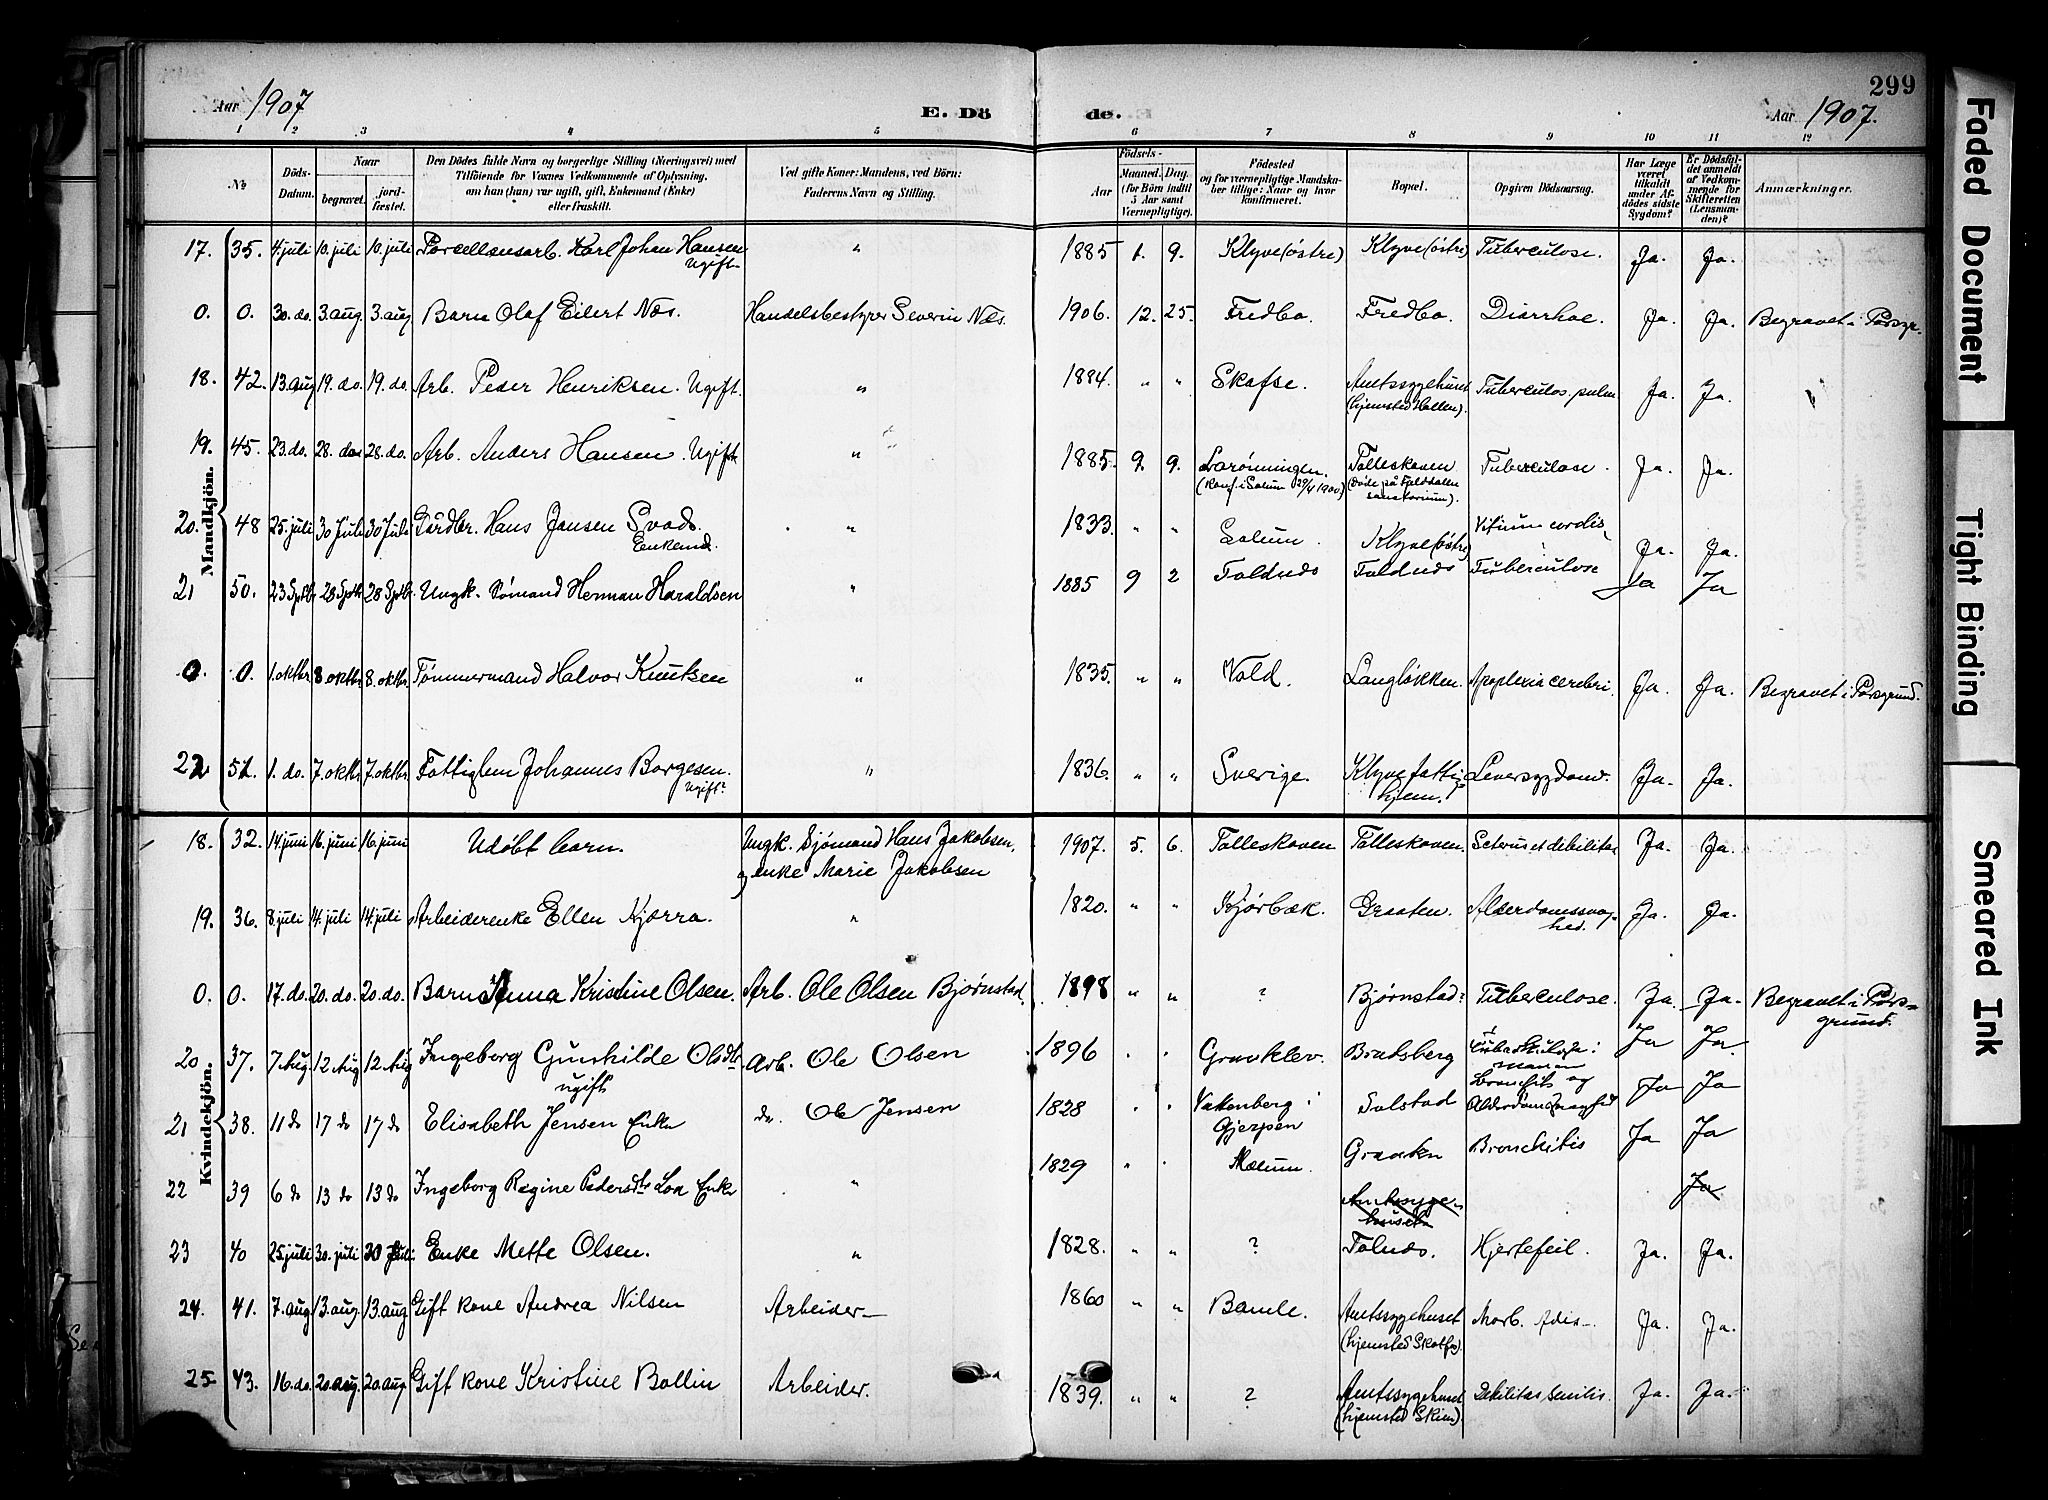 299
Aar 1907 E. Dö de. Aar 1907.
1 2 3 4 5 6 7 8 9 10 11 12
№ Döds-Datum. Naar begravet. jordfæstet. Den Dödes fulde Navn og borgerlige Stilling (Næringsvei) med Tilföiende for Voxnes Vedkommende af Oplysning, om han (hun) var ugift, gift, Enkemand (Enke) eller fraskilt. Ved gifte Koner: Mandens, ved Börn: Faderens Navn og Stilling. Födsels- Aar Maaned. Dag. (for Börn indtil 5 Aar samt Værnepligtige). Födested og for værnepligtige Mandskaber tillige: Naar og hvor konfirmeret. Bopæl. Opgiven Dödsaarsag. Har Læge været tilkaldt under Afdödes sidste Sygdom? Er Dödsfaldet anmeldt af Vedkommende for Skifteretten (Lensmanden)? Anmærkninger.
Mandkjön.
17. 35. 4. juli 10. juli 10. juli Porcellænsarb. Karl Johan Hansen Ugift. " 1885 1. 9. Klyve (østre) Klyve (østre) Tuberculose. Ja. Ja.
0. 0. 30. do. 3. aug. 3. aug. Barn Olaf Eilert Næs. Handelsbestyrer Severin Næs. 1906. 12. 25. Fredbo. Fredbo. Diarrhoe. Ja. Ja. Begravet i Porsgr.
18. 42. 13. aug 19. do. 19. do. Arb. Peder Henriksen. Ugift. " 1884. " " Skotfos. Amtssygehuset (hjemsted Hallen). Tuberculos. pulm. Ja. Ja.
19. 45. 23. do. 28. do. 28. do. Arb. Anders Hansen. Ugift. " 1885. 9. 9. (Konf. i Solum 1900) Tolleskoven. (Døde på sanatorium). Tuberculose. Ja. Ja.
20. 48 25. juli 30 Juli 30 Juli Gårdbr. Hans Jansen Svads. Enkemd. " 1833. " " Solum. Klyve (østre) Vitium cordis Ja. Ja.
21 50. 23 Sptbr 28 Sptbr 28 Sptbr Ungk. Sømand Herman Haraldsen " 1885 9 2 Toldnæs Toldnæs Tuberculose Ja Ja
0. 0. 1. oktbr. 8. oktbr. 8. oktbr. Tømmermand Halvor Knutsen " 1835. " " Vold. Langløkken. Apoplexia cerebri. Ja. Ja. Begravet i Porsgrund.
22 52. 1. do. 7. oktbr. 7. oktbr. Fattiglem Johannes Borgesen. Ugift? " 1836. " " Sverige. Klyve fattighjem. Leversygdom. Ja. Ja.
Kvindekjön.
18. 32. 14. juni 16. juni 16. juni Udøbt barn. Ungk. Sjømand Hans Jakobsen, og enke Marie Jakobsen 1907. 5. 6. Tolleskoven Tolleskoven. Icterus et debilitas Ja. Ja.
19. 36. 8. juli 14. juli 14. juli Arbeiderenke Ellen Kjørra. " 1820. " " Kjørbæk. Graaten. Alderdomssvaghed. Ja. Ja.
0. 0. 17. do. 20. do. 20. do. Barn Anna Kristine Olsen. Arb. Ole Olsen Bjørnstad. 1898 " " ? Bjørnstad? Tuberculose. Ja. Ja. Begravet i Porsgrund.
20. 37. 7 Aug 12 Aug 12 Aug Ingeborg Gunhilde Olsdtr ugift Arb. Ole Olsen 1896 " " Gravklev. Bratsberg Ja Ja.
21 38. 11 do 17 do 17 do Elisabeth Jensen Enke do. Ole Jensen 1828 " " Valkenberg i Gjerpen Solstad Bronchitis og Alderdomssvaghed Ja Ja
22 39 6 do 13 do 13 do Ingeborg Regine Pedersdtr Loa Enke " 1829 " " Mælum. Graaten Bronchitis Ja Ja
Amtssygehuset Ja
23 40 25. juli 30. juli 30 Juli Enke Mette Olsen. " 1828. " " ? Tolnæs. Hjertefeil. Ja. Ja.
24. 41. 7. aug. 13. aug. 13. aug Gift kone Andrea Nilsen Arbeider— 1860 " " Bamle. Amtssygehuset (hjemsted Skotfos). Morb. Adis—. Ja. Ja.
25 43. 16. do. 20. aug. 20. aug. Gift kone Kristine Bollin Arbeider. 1839. " " ? Amtssygehuset (hjemsted Skien). Debilitas senilis. Ja. Ja.
Faded Document
Tight Binding
Smeared Ink